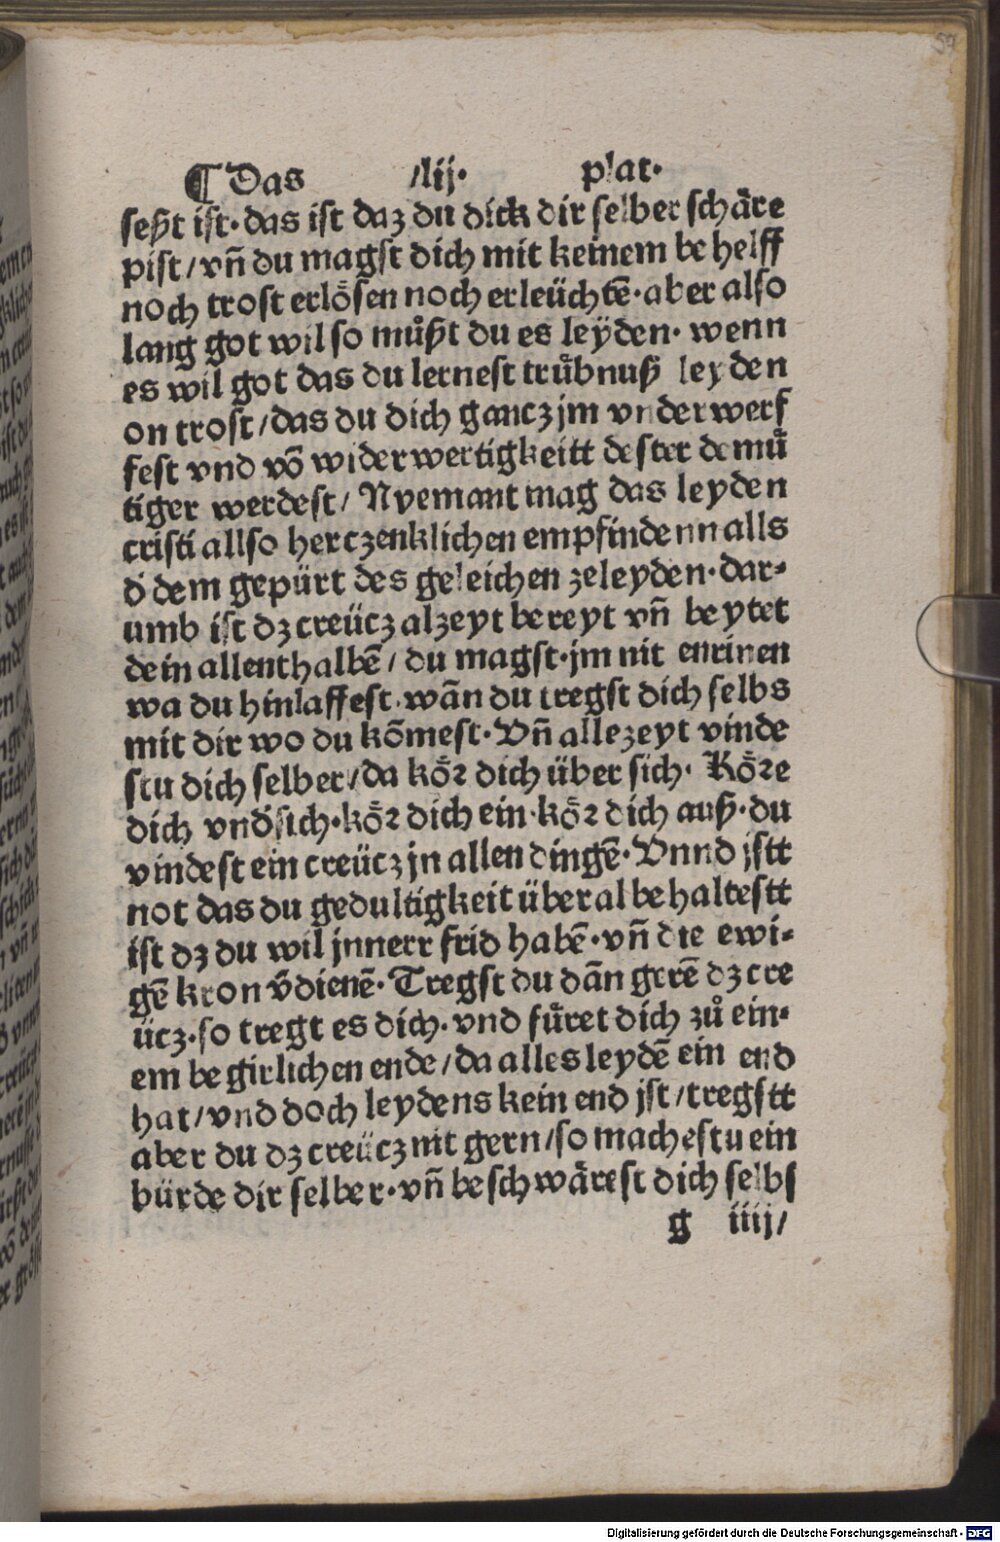 59
¶ Das /lij· plat·
seßt ist· das ist daz du dick dir selber schäre
pist / vñ du magst dich mit keinem be helff
noch trost erlösen noch erleüchtẽ· aber also
lang got wil so muͦßt du es leyden· wenn
es wil got das du lernest truͤbnuß leyden
on trost / das du dich gancz jm vnderwerf
fest vnd võ widerwertigkeitt dester demuͤ
tiger werdest / Nyemant mag das leyden
cristi allso herczenklichen empfindenn alls
d̕ dem gepürt des geleichen zeleyden· dar⸗
umb ist dz creücz alzeyt bereyt vñ beytet
dein allenthalbẽ / du magst· jm nit entrinen
wa du hinlaffest· wãn du tregst dich selbs
mit dir wo du kõmest· Vñ allezeyt vinde
stu dich selber / da koͤꝛ dich über sich· Koͤꝛe
dich vnd̕sich· koͤꝛ dich ein· koͤꝛ dich auß· du
vindest ein creücz jn allen dingẽ· Vnnd jstt
not das du gedultigkeit überal behaltestt
ist dz du wil jnnerr frid habẽ· vñ die ewi⸗
gẽ kron v̄dienẽ· Tregst du dãn gerẽ dz cre
ücz· so tregt es dich· vnd fuͤret dich zuͦ ein⸗
em begirlichen ende / da alles leydẽ ein end
hat / vnd doch leydens kein end jst / tregstt
aber du dz creücz nit gern / so machestu ein
bürde dir selber· vñ beschwärest dich selbs
g iiij /
Digitalisierung gefördert durch die Deutsche Forschungsgemeinschaft - DFG